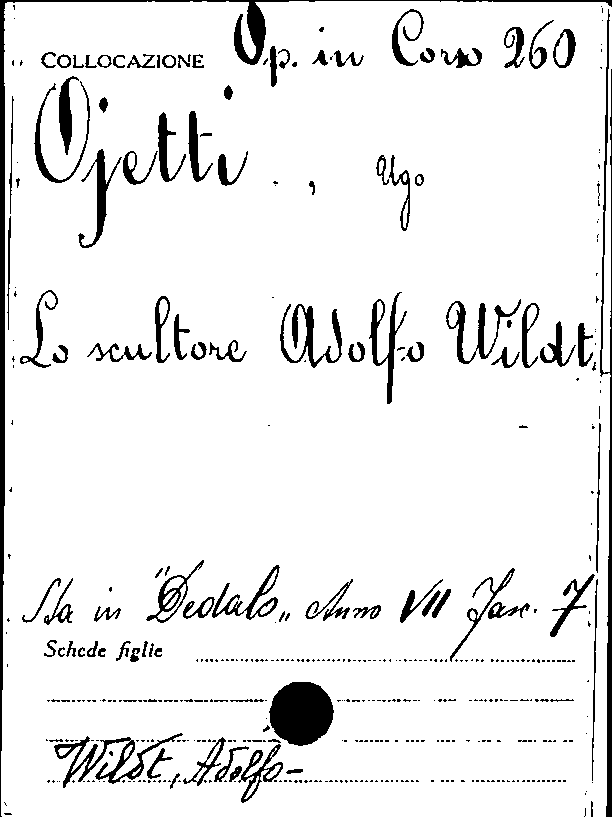 COLLOCAZIONE Op. in Corso 260
Ojetti. , Ugo
Lo scultore Adolfo Wildt.
Sta in "Dedalo" Anno VII Fasc. 7
Schede figlie
Wildt, Adolfo-